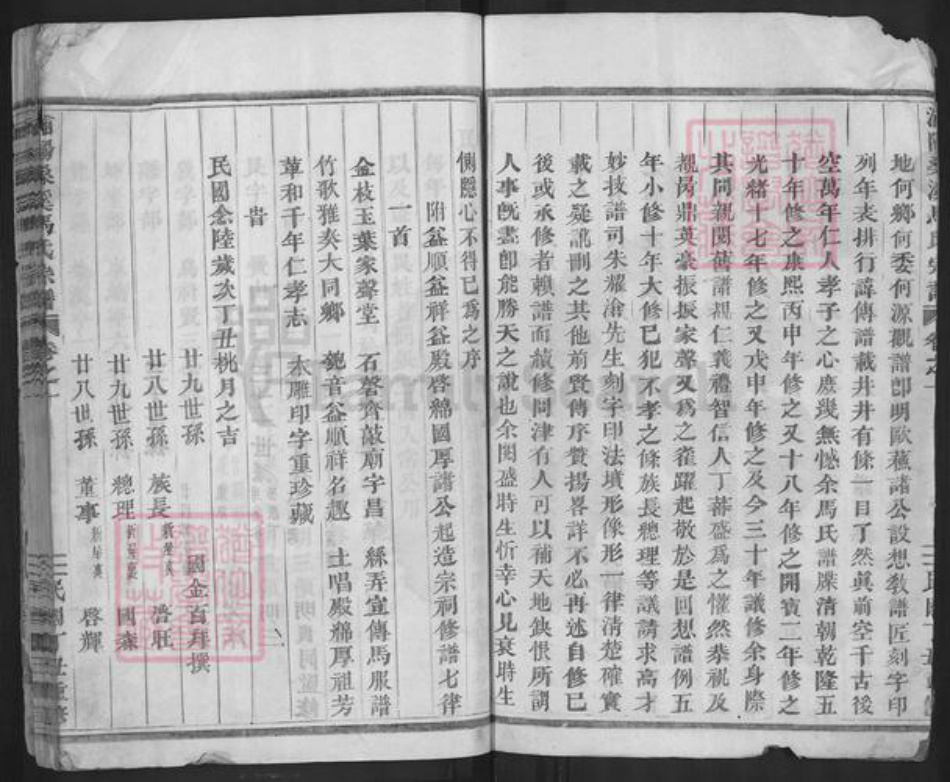 地何鄉何委何源觀譜卽明歐蘇諸公設想敎譜匠刻字印
列年表排行諱傳譜載井井有條一目了然眞前空千古後
空萬年仁人孝子之心庶幾無憾余馬氏譜牒清朝乾隆五
十年修之康熙丙申年修之又十八年修之開寶二年修之
光緒十七年修之又戊申年修之及今三十年議修余身際
其同親閱舊譜規仁義禮智信人丁蕃盛爲之懽然恭祝及
觀房鼎英豪振振家聲又爲之雀躍起敬於是回想譜例五
年小修十年大修已犯不孝之條族長總理等議請求高才
妙技譜司朱耀滄先生刻字印法墳形像形一律清楚確實
載之疑訛刪之其他前賢傳序贊揚畧詳不必再述自修已
後或承修者賴譜而續修問津有人可以補天地鈌恨所謂
人事旣盡卽能勝天之說也余閱盛時生忻幸心見衰時生
惻隱心不得已爲之序
附益順益祥益殿啓綿國厚諸公起造宗祠修譜七律
一首
金枝玉葉家聲堂 石磬齊敲廟宇昌 絲弄宣傳馬服譜
竹歌雅奏大同鄉 匏音益順祥名趣 土唱殿綿厚祖芳
革和千年仁孝志 木雕印字重珍藏
旹
民國念陸歲次丁丑桃月之吉
廿九世孫 國金百拜撰
廿八世孫 族長 啓旺
廿九世孫 總理 國森
廿八世孫 董事 啓輝
浦陽 溪馬氏宗譜 卷之一
民國丁丑重修
Family Search